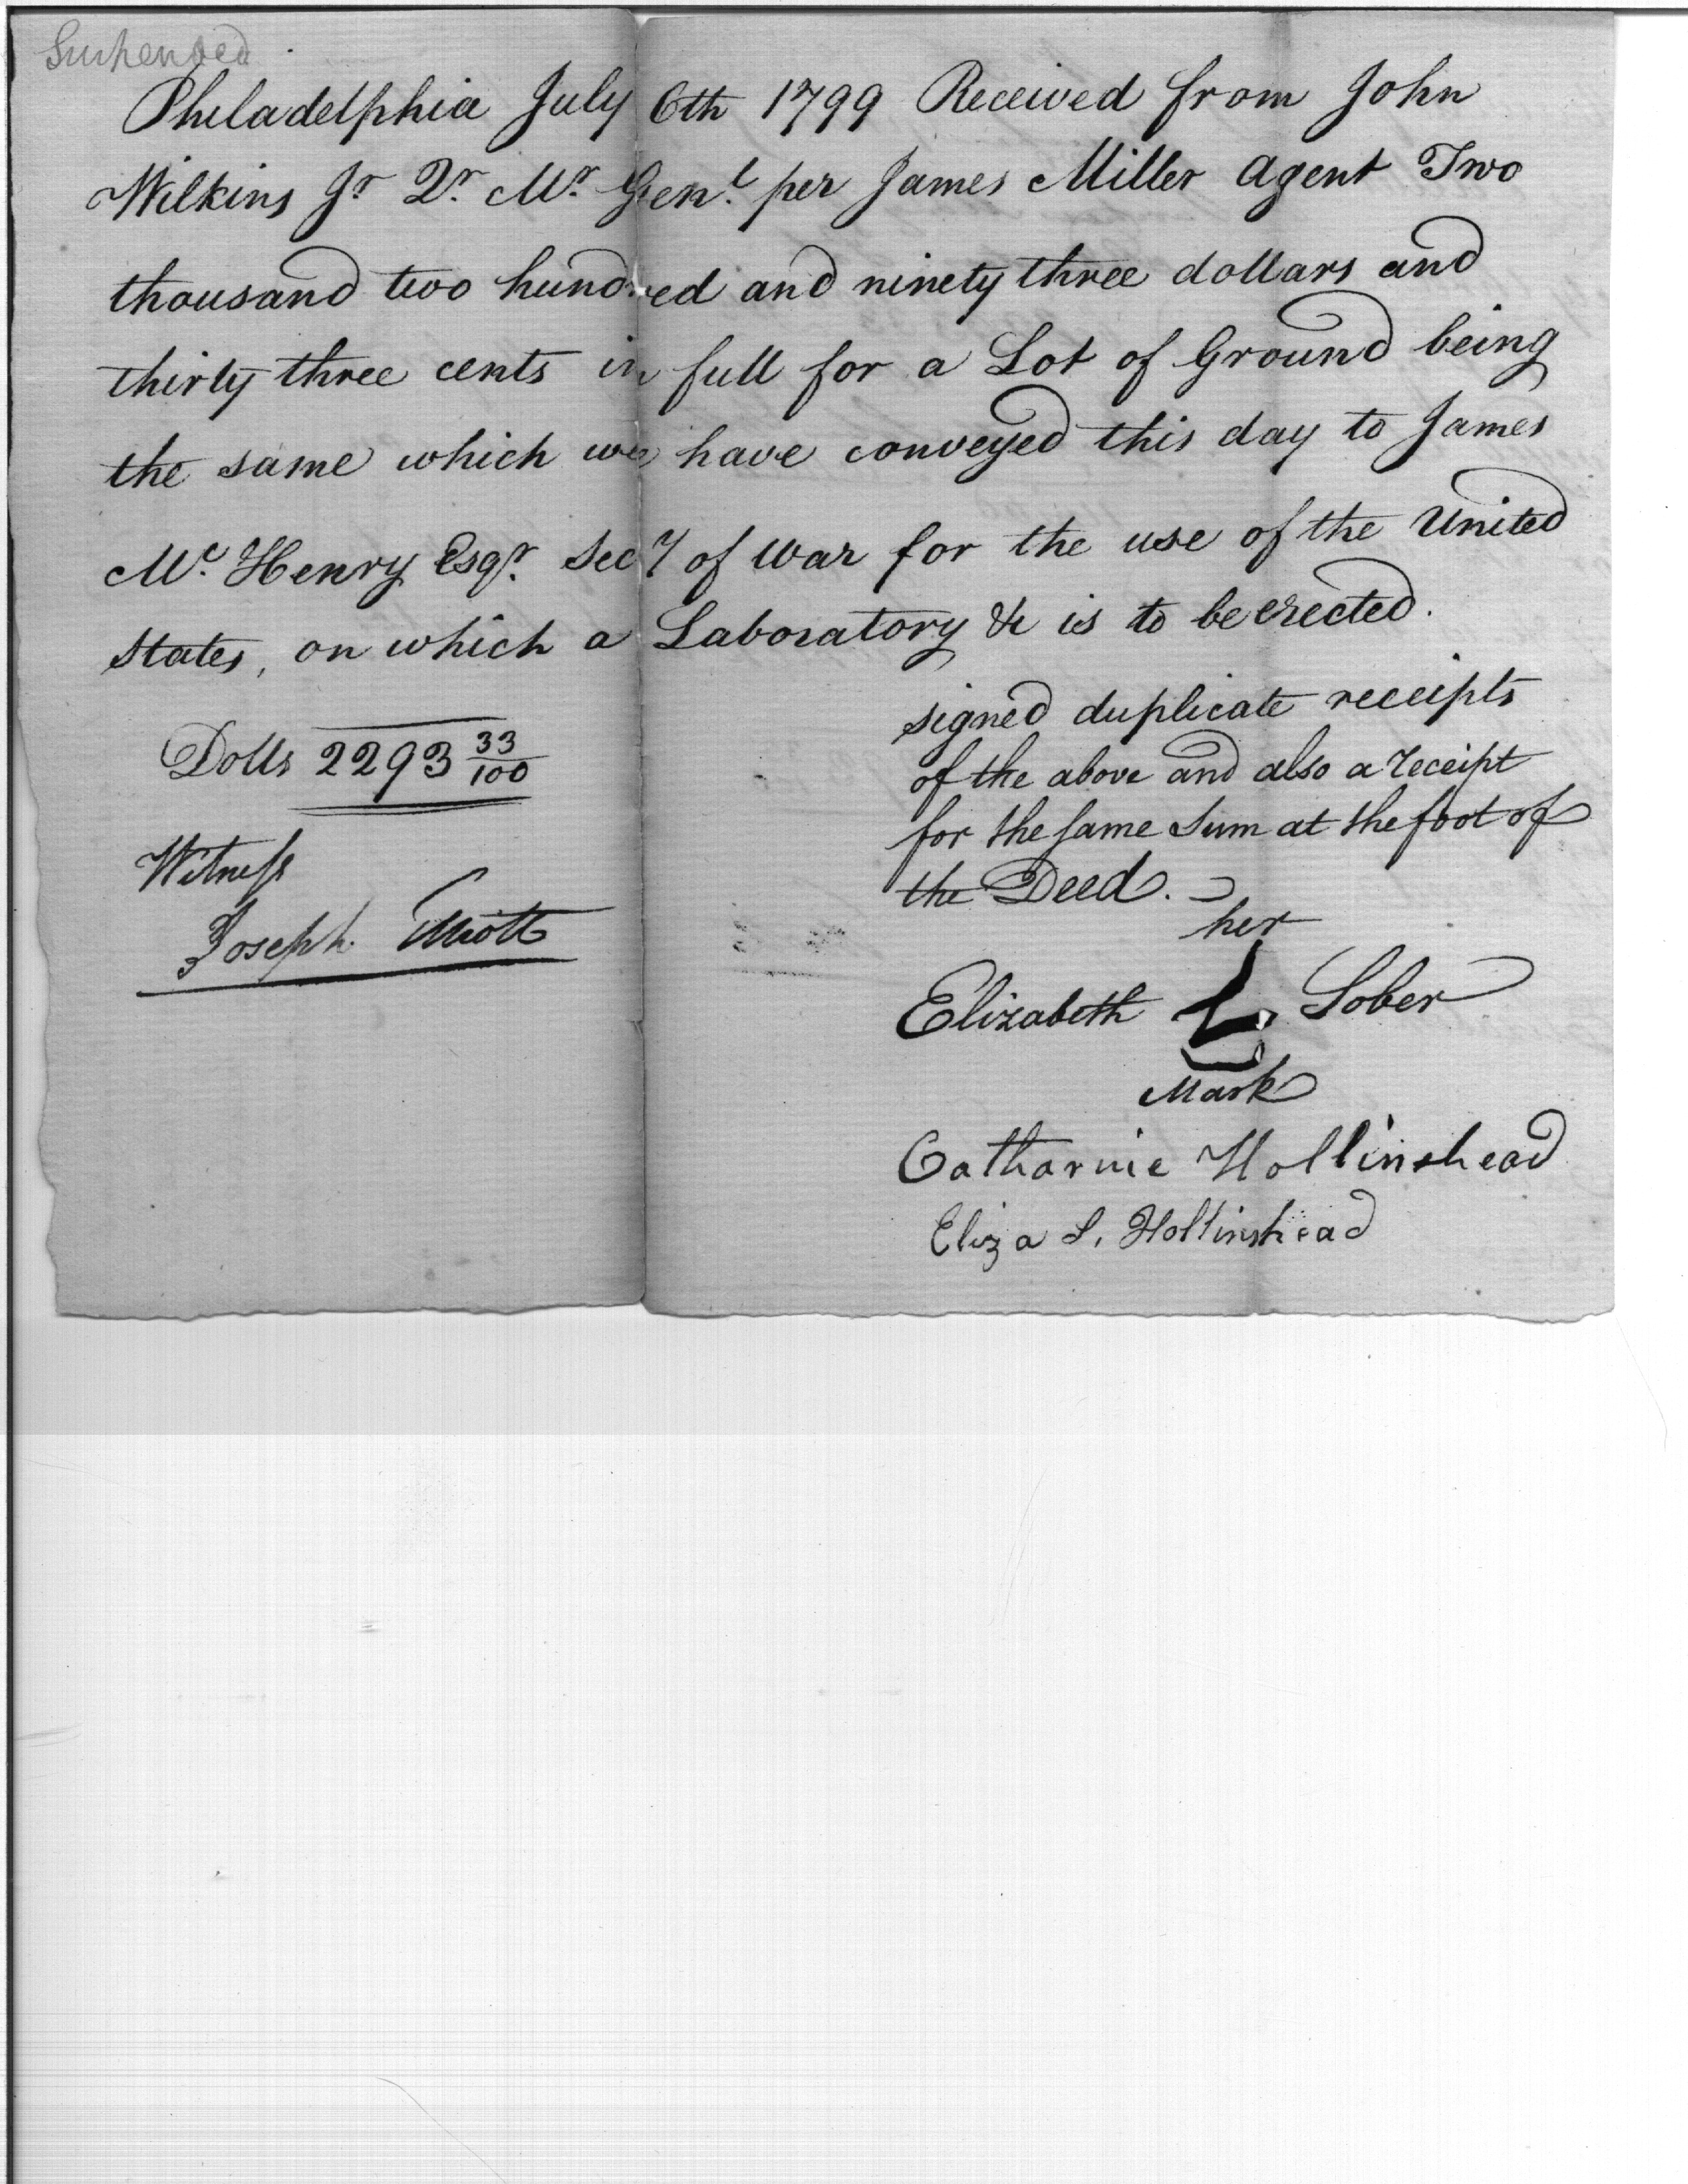 Suspended
Philadelphia July 6th 1799 Received from John
Wilkins Jr Qr. Mr. Genl. per James Miller Agent Two
thousand two hundred and ninety three dollars and
thirty three cents in full for a Lot of Ground being
the same which we have conveyed this day to James
Mc. Henry Esqr. Secy of War for the use of the United
States, on which a Laboratory &c is to be erected.
signed duplicate receipts
of the above and also a receipt
for the same Sum at the foot of
the Deed.
Dolls 2293 33/100
Witness
Joseph Elliott
her
Elizabeth L Sober
Mark
Catharine Hollinshead
Eliza S. Hollinshead